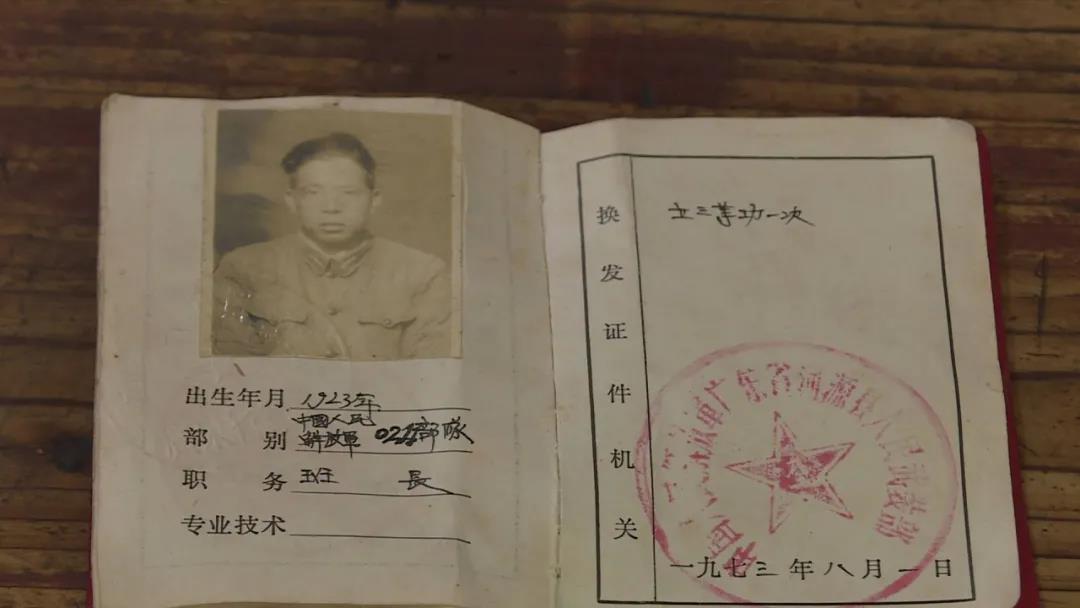 出生年月 1923年
部别 中國人民解放軍 部隊
职务 班長
专业技术
换发证件机关
立三等功一次
广东省河源县人民武装部
一九七三年八月一日